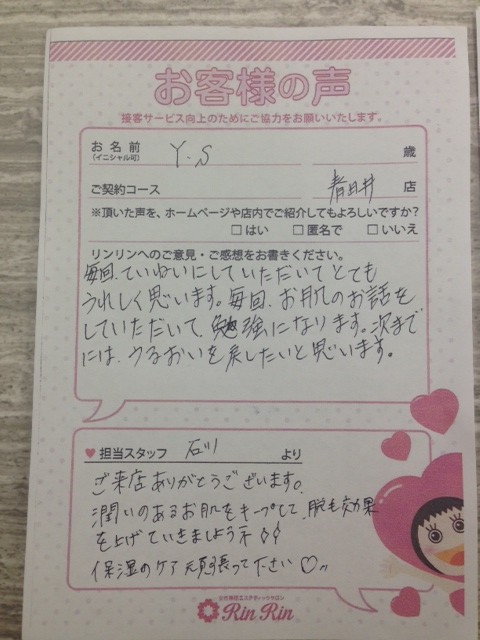 お客様の声
接客サービス向上のためにご協力をお願いいたします。
お名前 Y.S 歳
(イニシャル可)
ご契約コース 春日井 店
※頂いた声を、ホームページや店内でご紹介してもよろしいですか?
□はい □匿名で □いいえ
リンリンへのご意見・ご感想をお書きください。
毎回、ていねいにしていただいてとても
うれしく思います。毎回、お肌のお話を
していただいて、勉強になります。次まで
には、うるおいを戻したいと思います。
♥担当スタッフ 石川 より
ご来店ありがとうございます。
潤いのあるお肌をキープして、脱毛効果
を上げていきましょうネ
保湿のケア頑張って下さい♡
女性専用エステティックサロン
Rin Rin